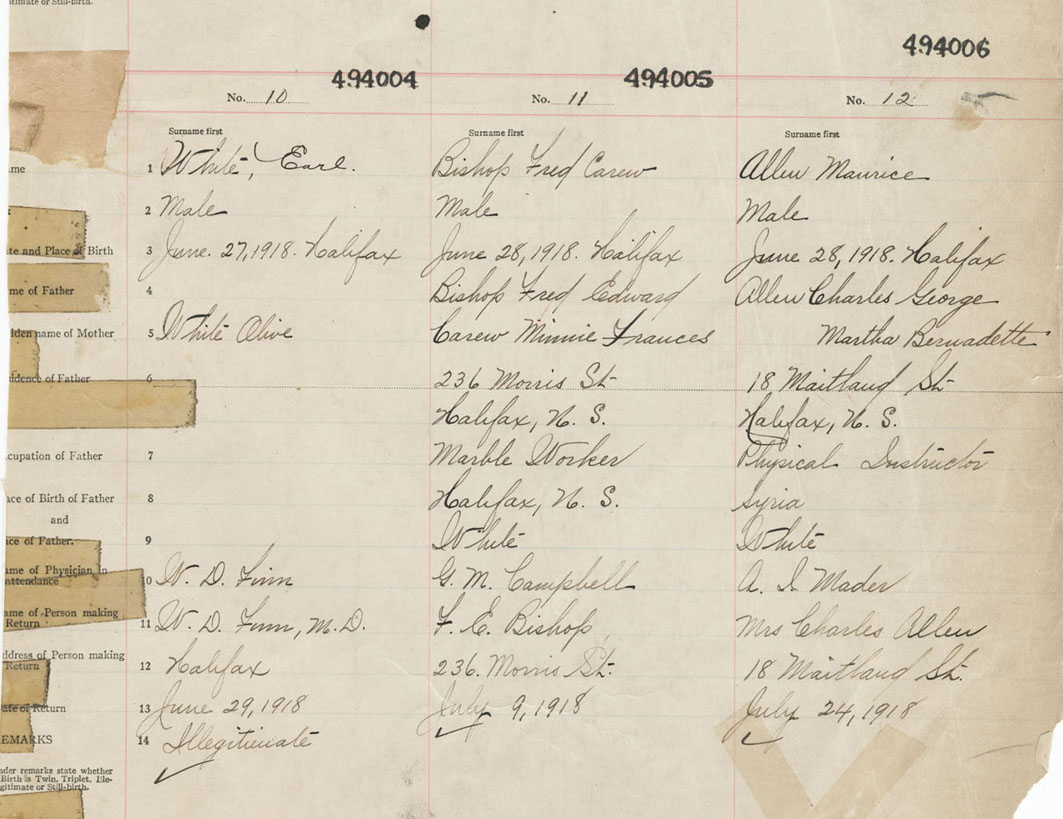 gitimate or Still-birth.
494004 494005 494006
No. 10 No. 11 No. 12
Surname first Surname first Surname first
ame 1 White, Earl. Bishop Fred Carew Allen Maurice
2 Male Male Male
ate and Place of Birth 3 June. 27, 1918. Halifax June 28, 1918. Halifax June 28, 1918. Halifax
me of Father 4 Bishop Fred Edward Allen Charles George
iden name of Mother 5 White Olive Carew Minnie Frances Martha Bernadette
sidence of Father 6 236 Morris St. 18 Maitland St.
Halifax, N. S. Halifax, N. S.
cupation of Father 7 Marble Worker Physical Instructor
ace of Birth of Father 8 Halifax, N. S. Syria
and
ce of Father. 9 White White
ame of Physician in
attendance 10 W. D. Finn G. M. Campbell A. I. Mader
ame of Person making
Return 11 W. D. Finn, M. D. F. E. Bishop Mrs Charles Allen
ddress of Person making
Return 12 Halifax 236 Morris St. 18 Maitland St.
ate of Return 13 June 29, 1918 July 9, 1918 July 24, 1918
EMARKS 14 Illegitimate
nder remarks state whether
Birth is Twin, Triplet, Ille-
gitimate or Still-birth.